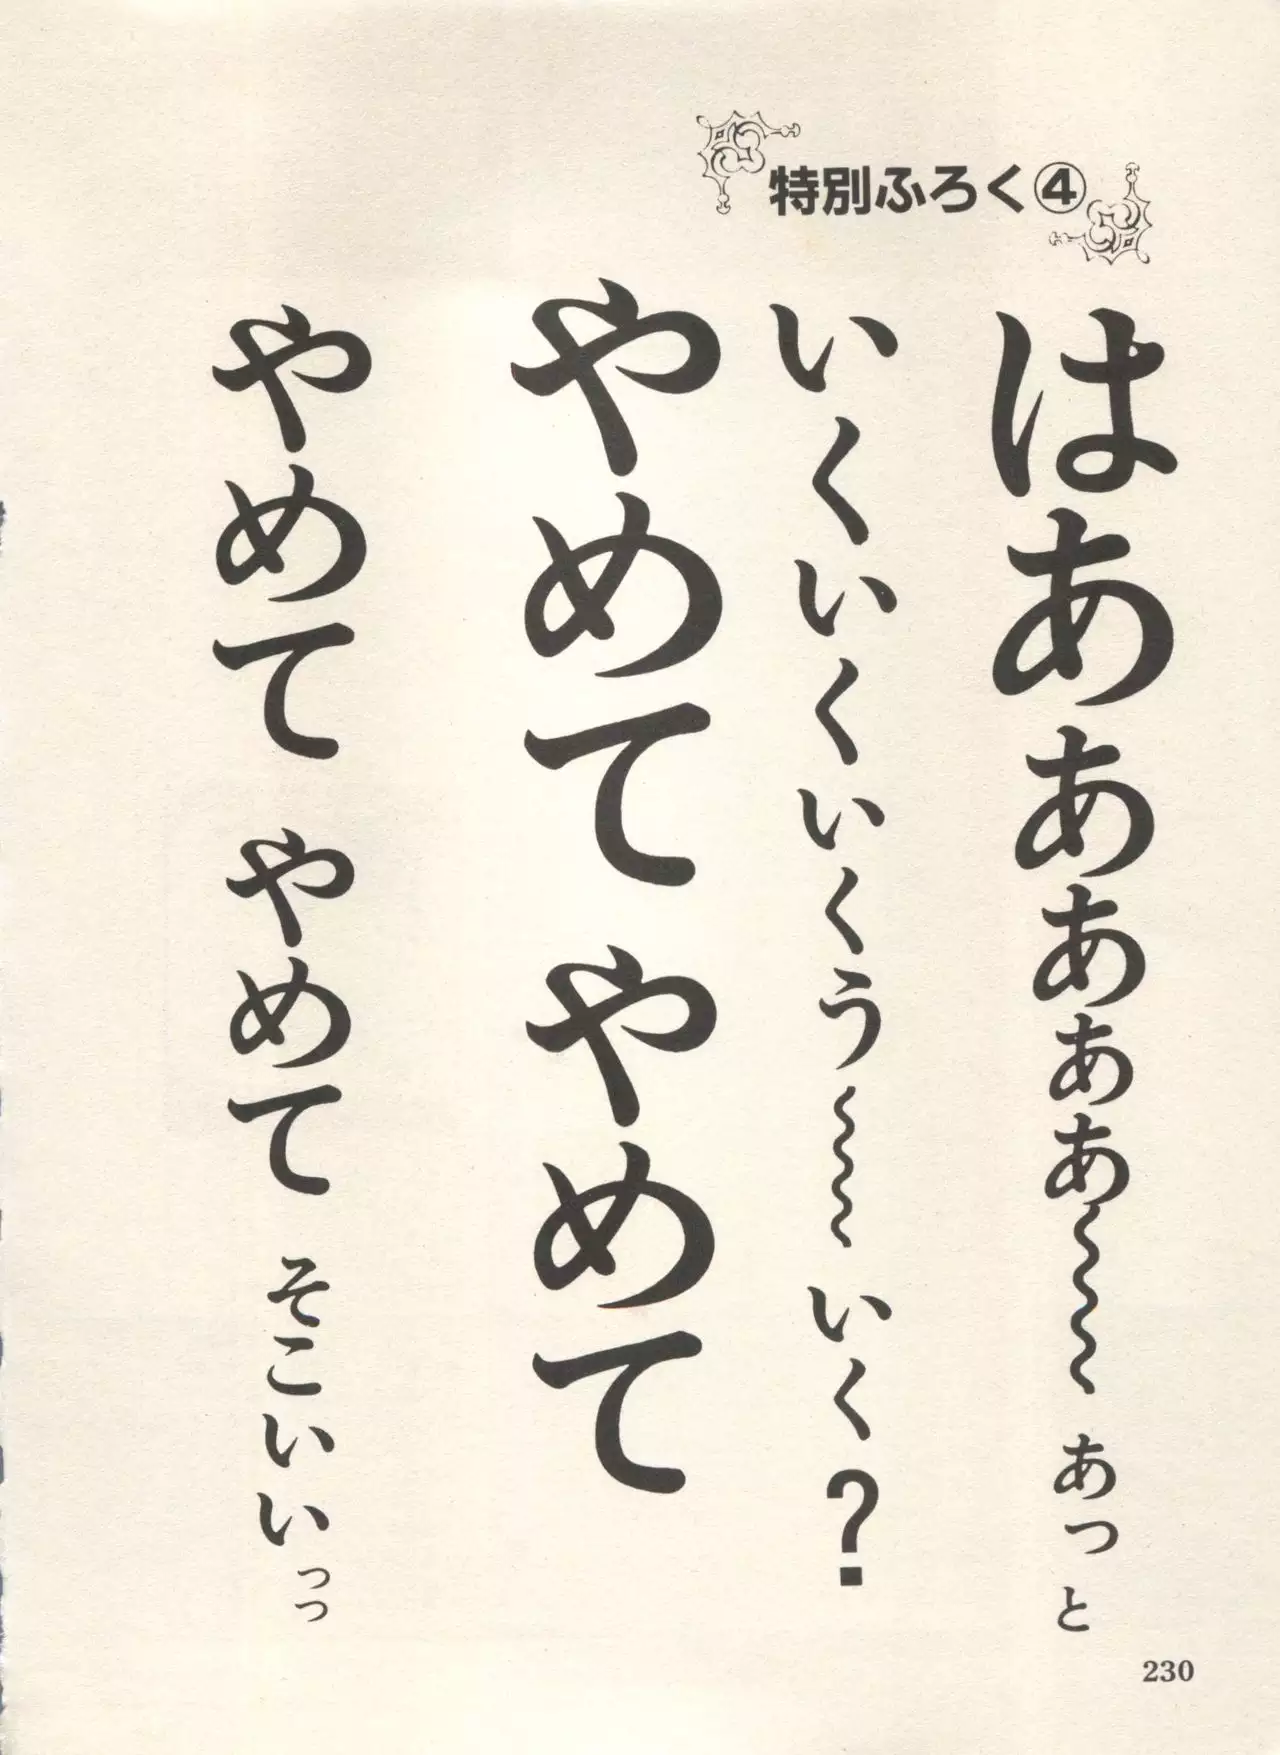 特別ふろく④
はあああああ〜〜〜〜あっと
いくいくいくう〜〜〜いく?
やめてやめて
やめて やめて そこいいっっ
230